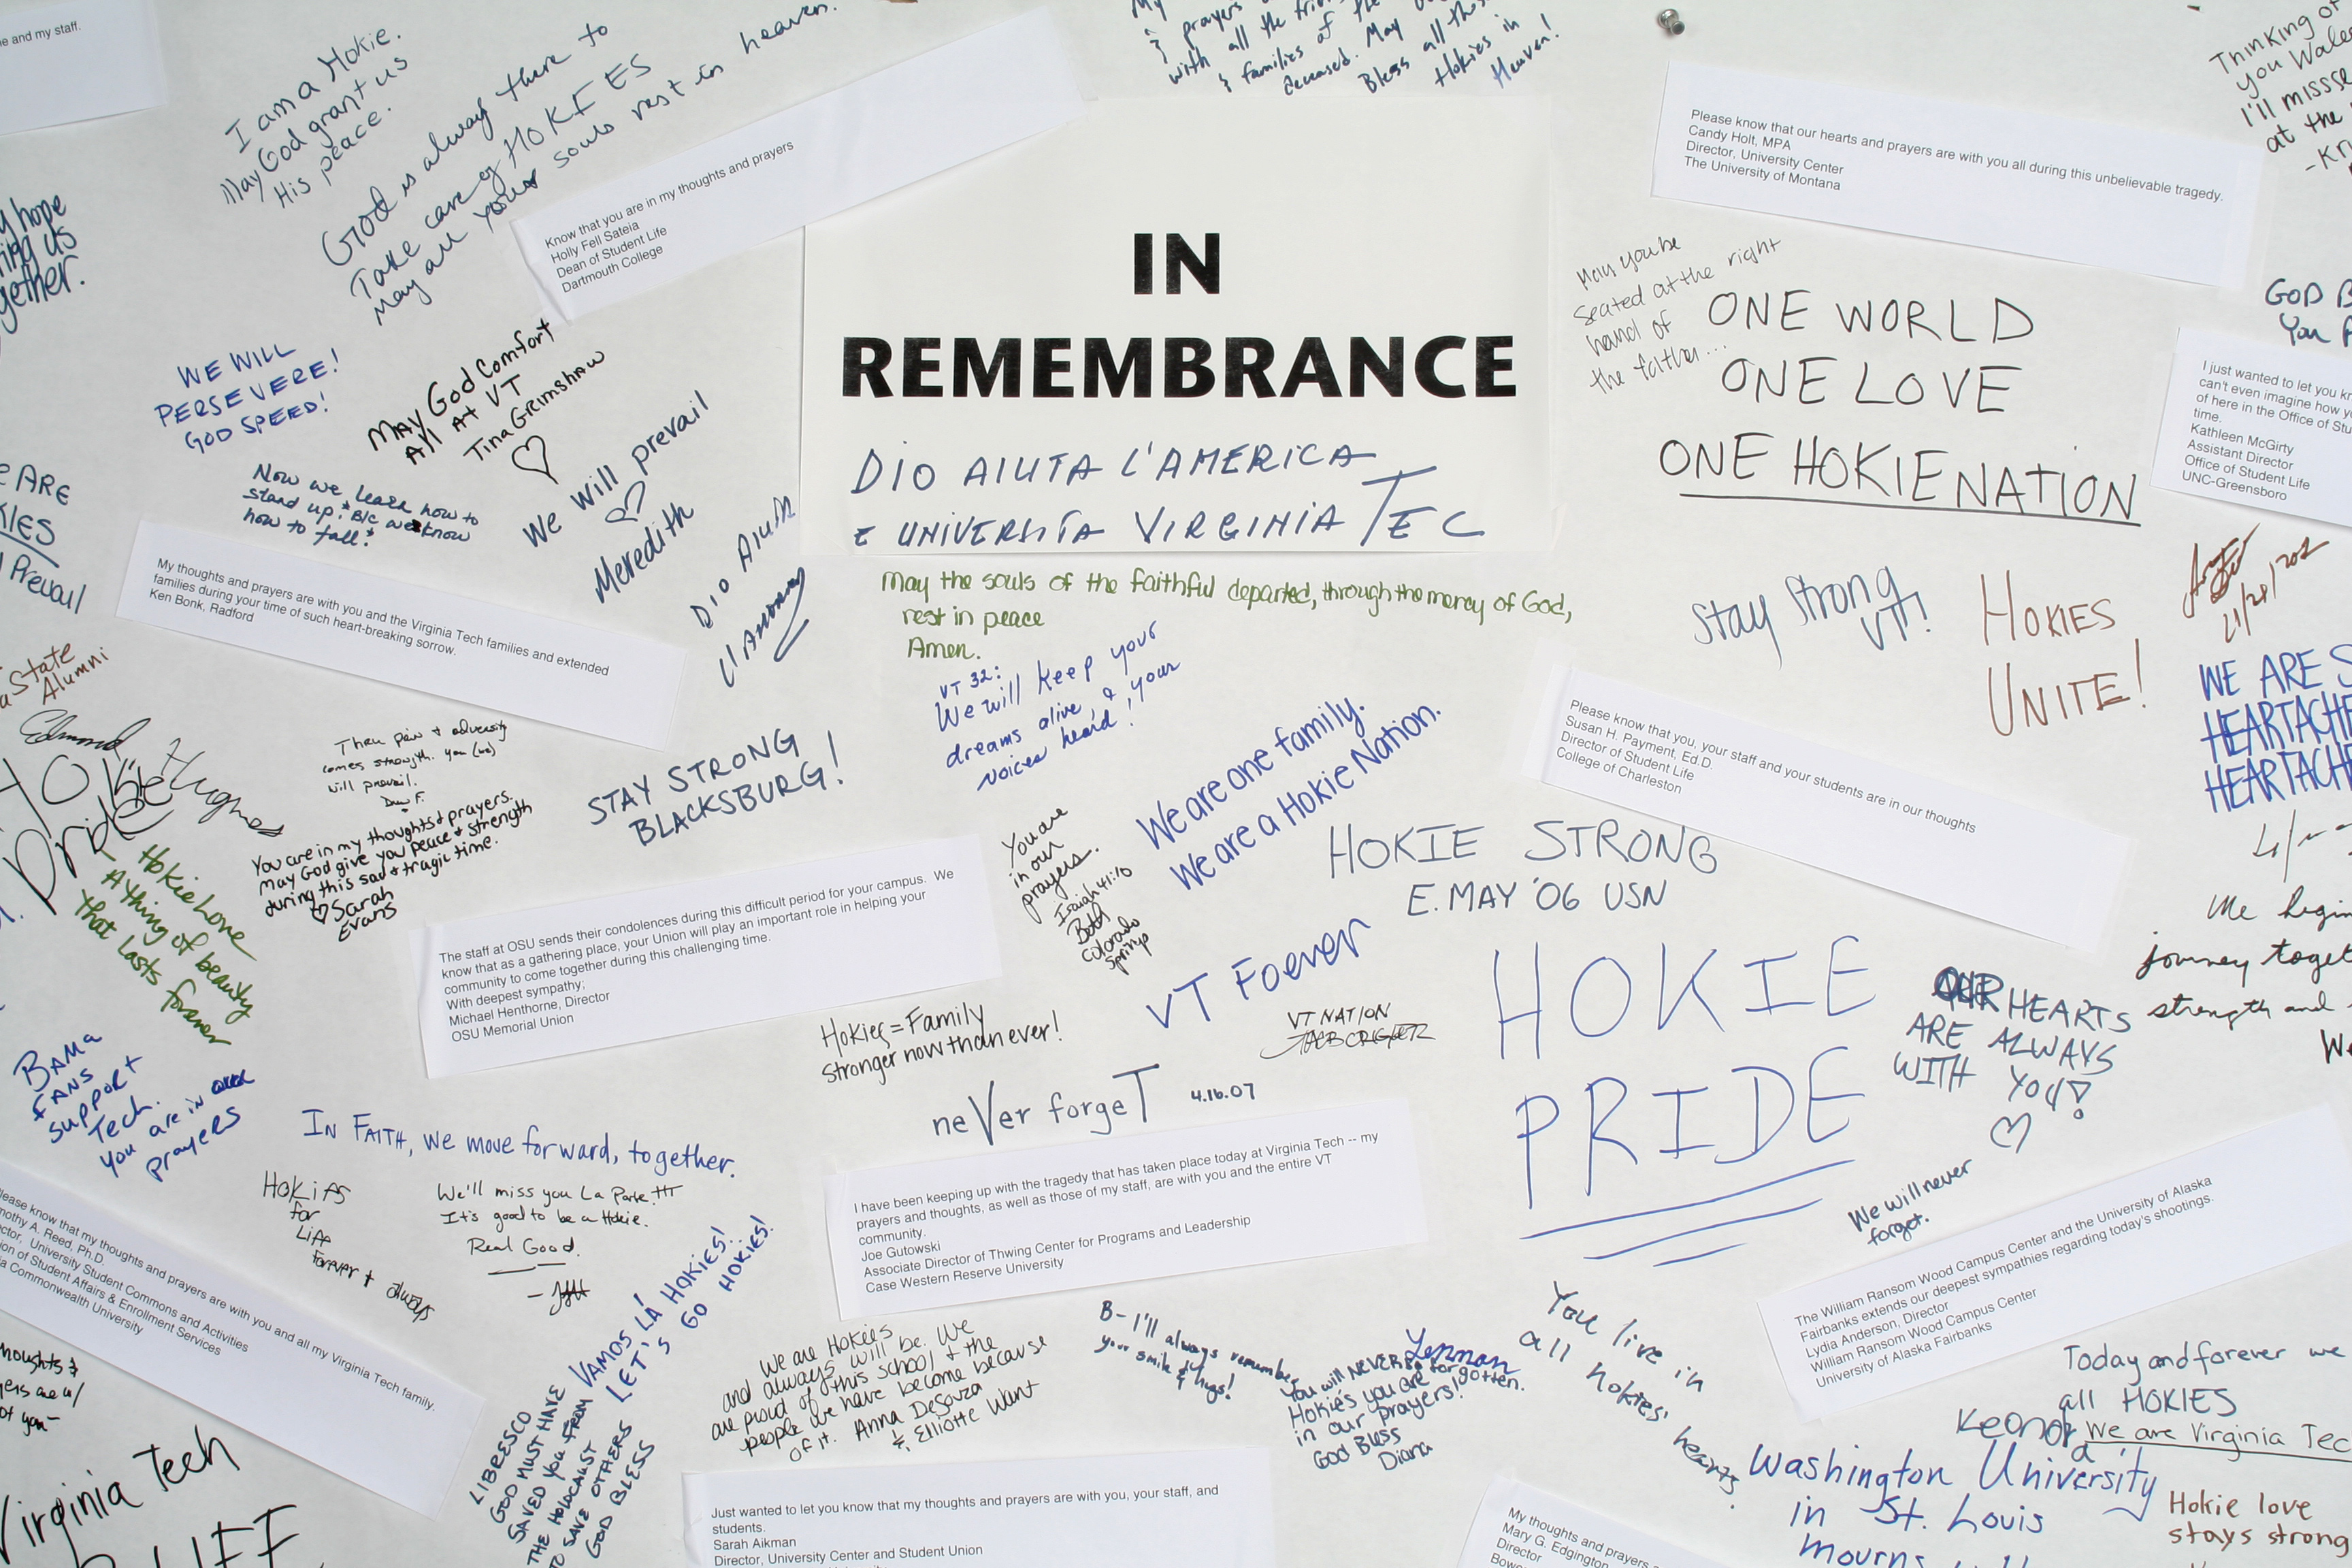 e and my staff.
I am a Hokie.
May God grant us
His peace.
God is always there to
Take care of HOKIES
May all your souls rest in heaven.
prayers
with all the
& families of the
deceased. May
Bless all those
Hokies in
Heaven!
Thinking of
you
I'll
at the
Know that you are in my thoughts and prayers
Holly Fell Sateia
Dean of Student Life
Dartmouth College
IN
REMEMBRANCE
DIO AIUTA L'AMERICA
E UNIVERSITA VIRGINIA TEC
Please know that our hearts and prayers are with you all during this unbelievable tragedy.
Candy Holt, MPA
Director, University Center
The University of Montana
May you be
seated at the right
hand of
the father...
ONE WORLD
ONE LOVE
ONE HOKIENATION
GOD B
You
I just wanted to let you kn
can't even imagine how y
of here in the Office of Stu
time.
Kathleen McGirty
Assistant Director
Office of Student Life
UNC-Greensboro
hope
ing us
gether.
WE WILL
PERSEVERE!
GOD SPEED!
MAY God Comfort
All At VT
Tina Grimshaw
We will prevail
Meredith
E ARE
KIES
Prevail
Now we learn how to
stand up, B/c we know
how to fall!
DIO AIUTA
L'AMERICA
My thoughts and prayers are with you and the Virginia Tech families and extended
families during your time of such heart-breaking sorrow.
Ken Bonk, Radford
May the souls of the faithful departed, through the mercy of God,
rest in peace
Amen.
VT 32:
We will keep your
dreams alive, & your
voices heard!
Stay Strong
VT!
HOKIES
UNITE!
WE ARE S
HEARTACHE
HEARTACHE
a State
Alumni
Edmond Hughes
HOKIE
Pride
Thru pain & adversity
comes strength. you (we)
will prevail.
You are in my thoughts & prayers.
May God give you peace & strength
during this sad & tragic time.
Sarah
Evans
STAY STRONG
BLACKSBURG!
We are one family.
We are a Hokie Nation.
Please know that you, your staff and your students are in our thoughts
Susan H. Payment, Ed.D.
Director of Student Life
College of Charleston
Hokie Love
- A thing of beauty
that lasts forever
The staff at OSU sends their condolences during this difficult period for your campus. We
know that as a gathering place, your Union will play an important role in helping your
community to come together during this challenging time.
With deepest sympathy;
Michael Henthorne, Director
OSU Memorial Union
You are
in our
prayers.
Isaiah 41:10
Beth
Colorado
Springs
HOKIE STRONG
E. MAY '06 USN
VT Foever
VT NATION
HOKIE
PRIDE
OUR HEARTS
ARE ALWAYS
WITH YOU!
We begin
journey toget
strength and
Hokies = Family
stronger now than ever!
neVer forgeT 4.16.07
BAMA
fANS
support
Tech.
you are in our
prayers
IN FAITH, we move forward, together.
I have been keeping up with the tragedy that has taken place today at Virginia Tech -- my
prayers and thoughts, as well as those of my staff, are with you and the entire VT
community.
Joe Gutowski
Associate Director of Thwing Center for Programs and Leadership
Case Western Reserve University
We will never
forget.
HOKIES
for
Life
Forever & always
We'll miss you La Porte HT
It's good to be a Hokie.
Real Good.
lease know that my thoughts and prayers are with you and all my Virginia Tech family.
mothy A. Reed, Ph.D.
ctor, University Student Commons and Activities
ion of Student Affairs & Enrollment Services
a Commonwealth University
The William Ransom Wood Campus Center and the University of Alaska
Fairbanks extends our deepest sympathies regarding today's shootings.
Lydia Anderson, Director
William Ransom Wood Campus Center
University of Alaska Fairbanks
VAMOS LÁ HOKIES!
LET'S GO HOKIES!
LIBRESCO
GOD MUST HAVE
SAVED YOU FROM
THE HOLOCAUST
TO SAVE OTHERS
GOD BLESS
We are Hokies
and always will be. We
are proud of this school & the
people we have become because
of it. Anna DeSouza
& Elliotte Want
B- I'll always remember
your smile & hugs!
Lenman
You will NEVER be forgotten.
Hokie's you are
in our prayers!
God Bless
Diana
You live in
all hokies'
hearts.
Today and forever we
all HOKIES
We are Virginia Tec
Washington University
in St. Louis
mourns
Hokie love
stays strong
houghts &
yers are w/
of you-
Virginia Tech
Just wanted to let you know that my thoughts and prayers are with you, your staff, and
students.
Sarah Aikman
Director, University Center and Student Union
My thoughts and prayers
Mary G. Edgington
Director